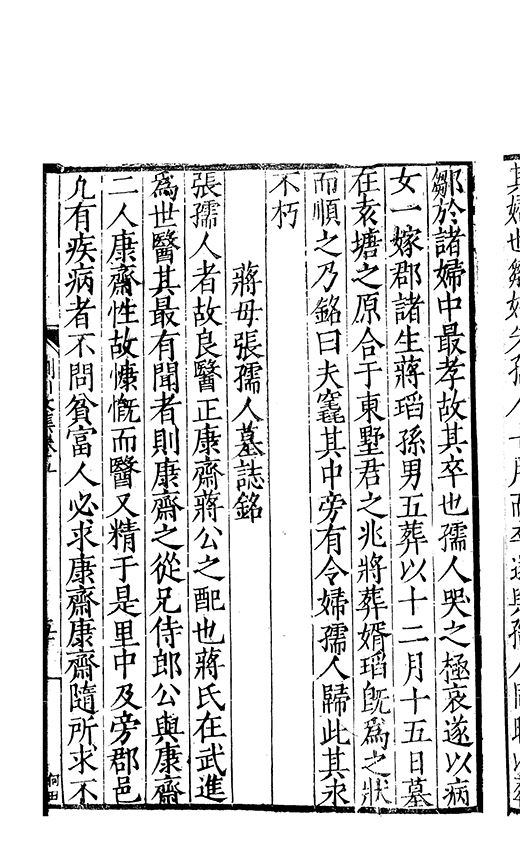 鄒於諸婦中最孝故其卒也孺人哭之極哀遂以病
女一嫁郡諸生蔣瑫孫男五葬以十二月十五日墓
在袁塘之原合于東墅君之兆將葬婿瑫旣爲之狀
而順之乃銘曰夫竁其中旁有令婦孺人歸此其永
不朽
蔣母張孺人墓誌銘
張孺人者故良醫正康齋蔣公之配也蔣氏在武進
爲世醫其最有聞者則康齋之從兄侍郎公與康齋
二人康齋性故慷慨而醫又精于是里中及旁郡邑
凡有疾病者不問貧富人必求康齋康齋隨所求不